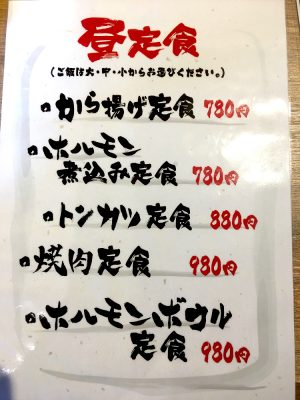 昼定食
(ご飯は大・中・小からお選びください。)
から揚げ定食 780円
ホルモン
煮込み定食 780円
トンカツ定食 880円
焼肉定食 980円
ホルモンボウル
定食 980円